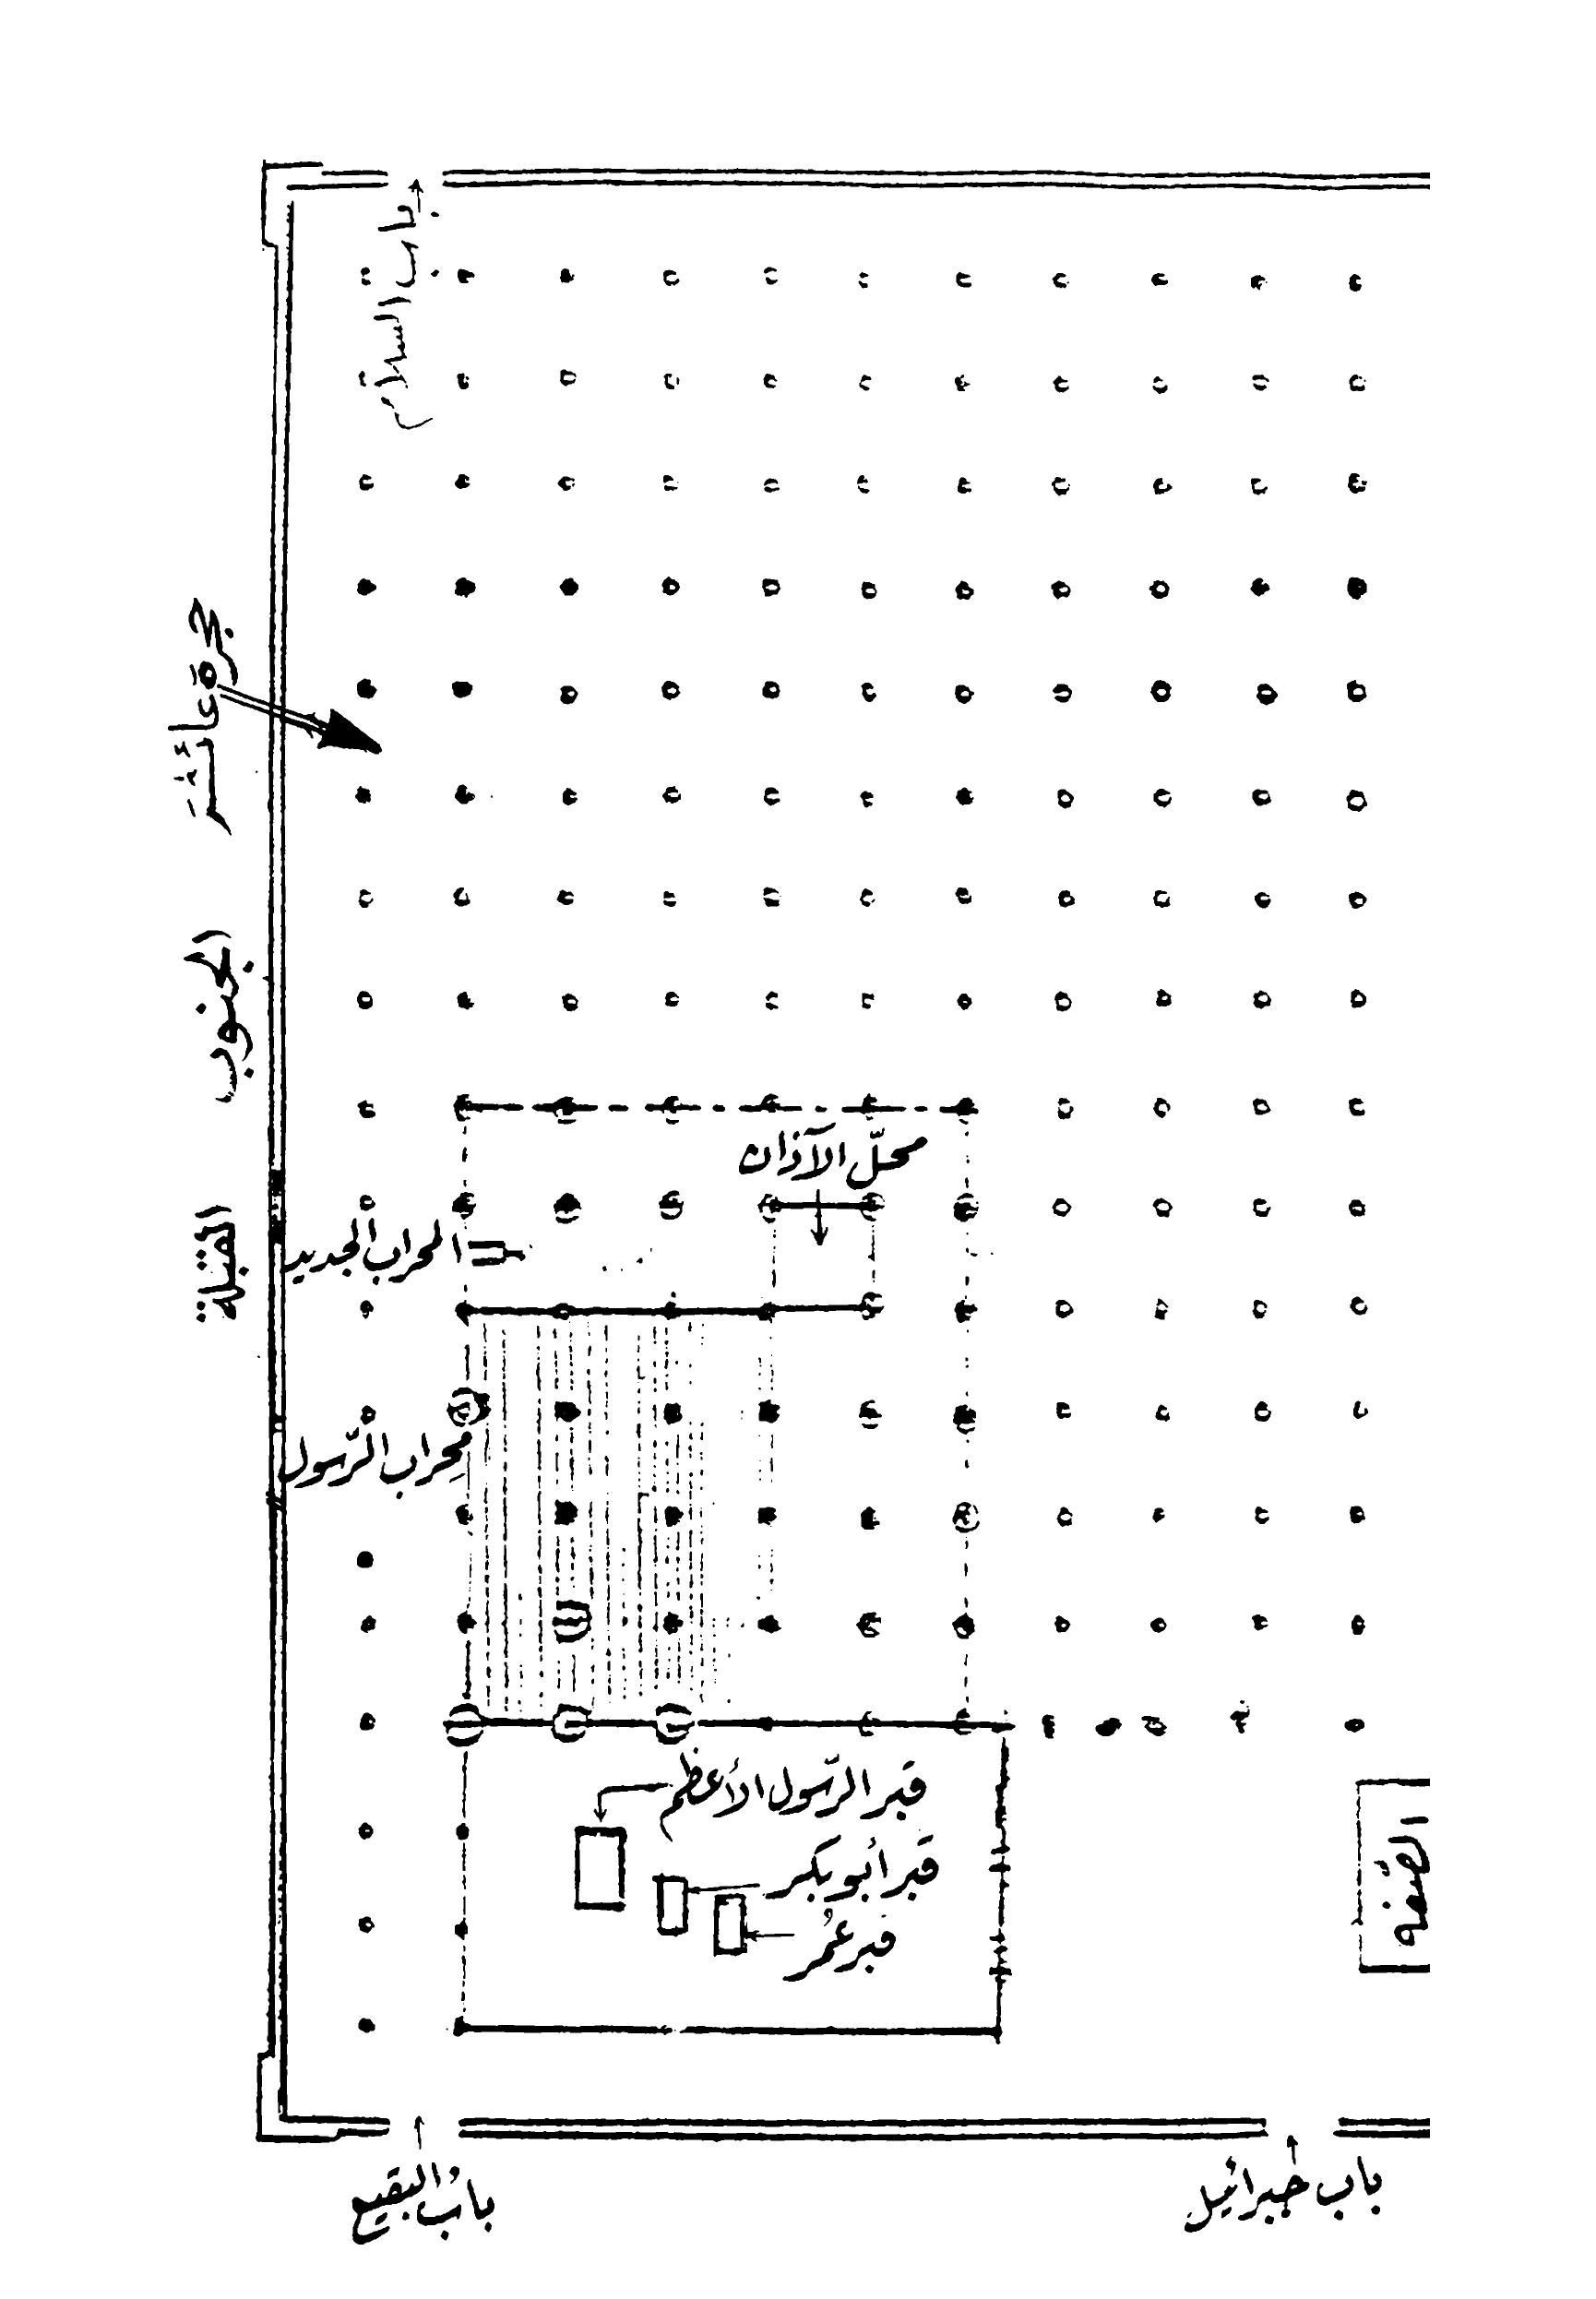 باب السلام
حجرة عائشة
الجنوب
القبلة
محلّ الآذان
المحراب الجديد
محراب الرّسول
قبر الرّسول الأعظم
قبر أبو بكر
قبر عُمر
الصُّفه
بابُ البقيع
باب جبرائيل